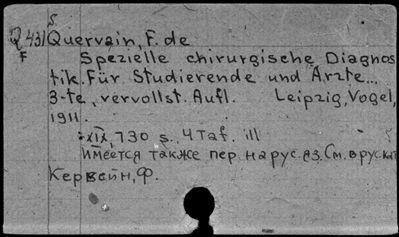 5
Q 431 Quervain, F. de
F
Spezielle chirurgische Diagnos
tik. Für Studierende und Ärzte...
3-te, vervollst. Aufl. Leipzig, Vogel,
1911.
XIX, 730 s. 4 Taf. ill
Имеется также пер. на рус. яз. См. в рус. кат
Кервейн, Ф.